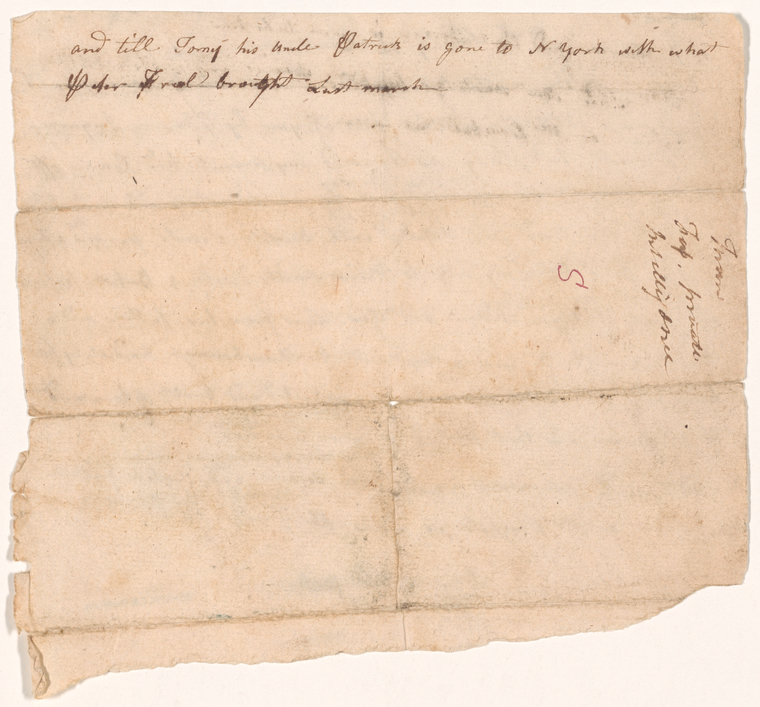 and till Tomy his uncle Patrick is gone to N York with what
Peter Freel brought Last march
5
From
Trap. private
Intelligence